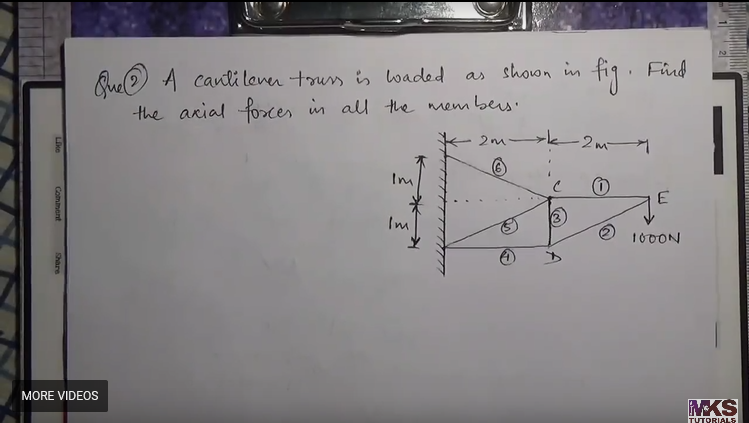 Que② A cantilever truss is loaded as shown in fig. Find
the axial forces in all the members.
2m 2m
⑥
1m C ① E
1m ⑤ ③ ② 1000N
④ D
Like
Comment
Share
1
2
MORE VIDEOS
MKS
TUTORIALS